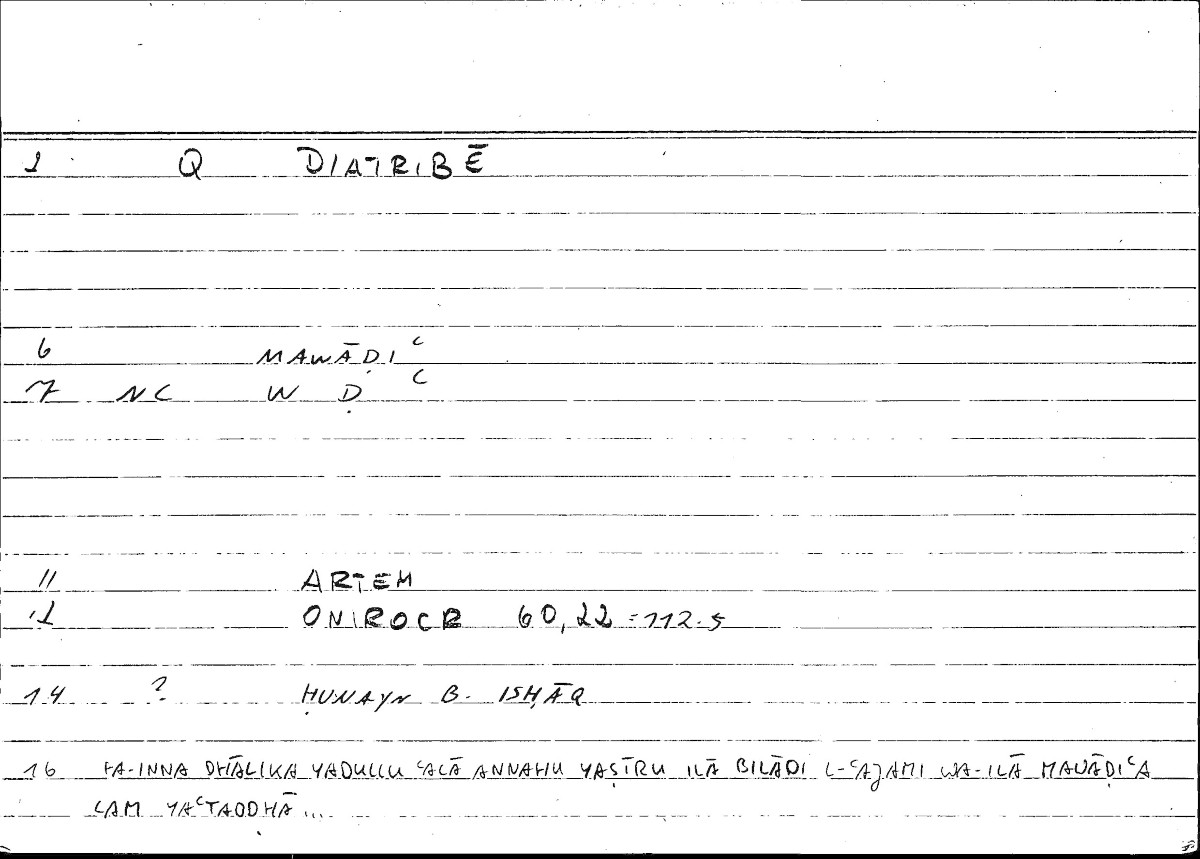 1 Q DIATRIBĒ
6 MAWĀḌIʿ
7 NC W Ḍ ʿ
11 ARTEM
12 ONIROCR 60,22 = 112.5
14 ? ḤUNAYN B. ISḤĀQ
16 FA-INNA DHĀLIKA YADULLU ʿALĀ ANNAHU YAṢĪRU ILĀ BILĀDI L-ʿAJAMI WA-ILĀ MAWĀḌIʿA
LAM YAʿTAODHĀ...